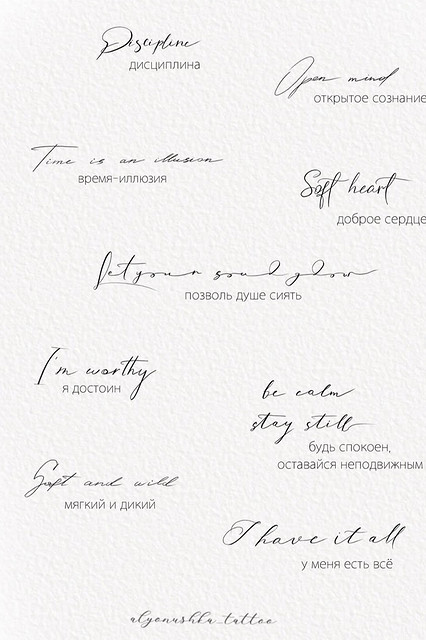 Discipline
дисциплина
Open mind
открытое сознание
Time is an illusion
время-иллюзия
Soft heart
доброе сердце
let your soul glow
позволь душе сиять
I'm worthy
я достоин
be calm
stay still
будь спокоен,
оставайся неподвижным
Soft and wild
мягкий и дикий
I have it all
у меня есть всё
alyonushka_tattoo